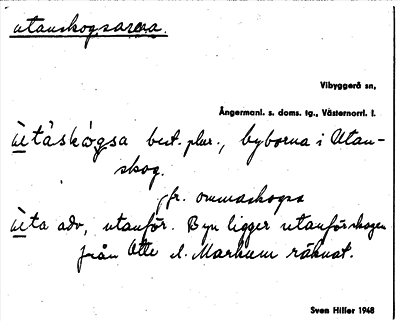 utanskogsarna.
Vibyggerå sn,
Ångermanl. s. doms. tg., Västernorrl. l.
ùtàskógsa best. plur., byborna i Utan-
skog.
jfr. ommaskogsa
ùta adv, utanför. Byn ligger utanför skogen
från Otte el. Markum räknat.
Sven Hillfer 1948